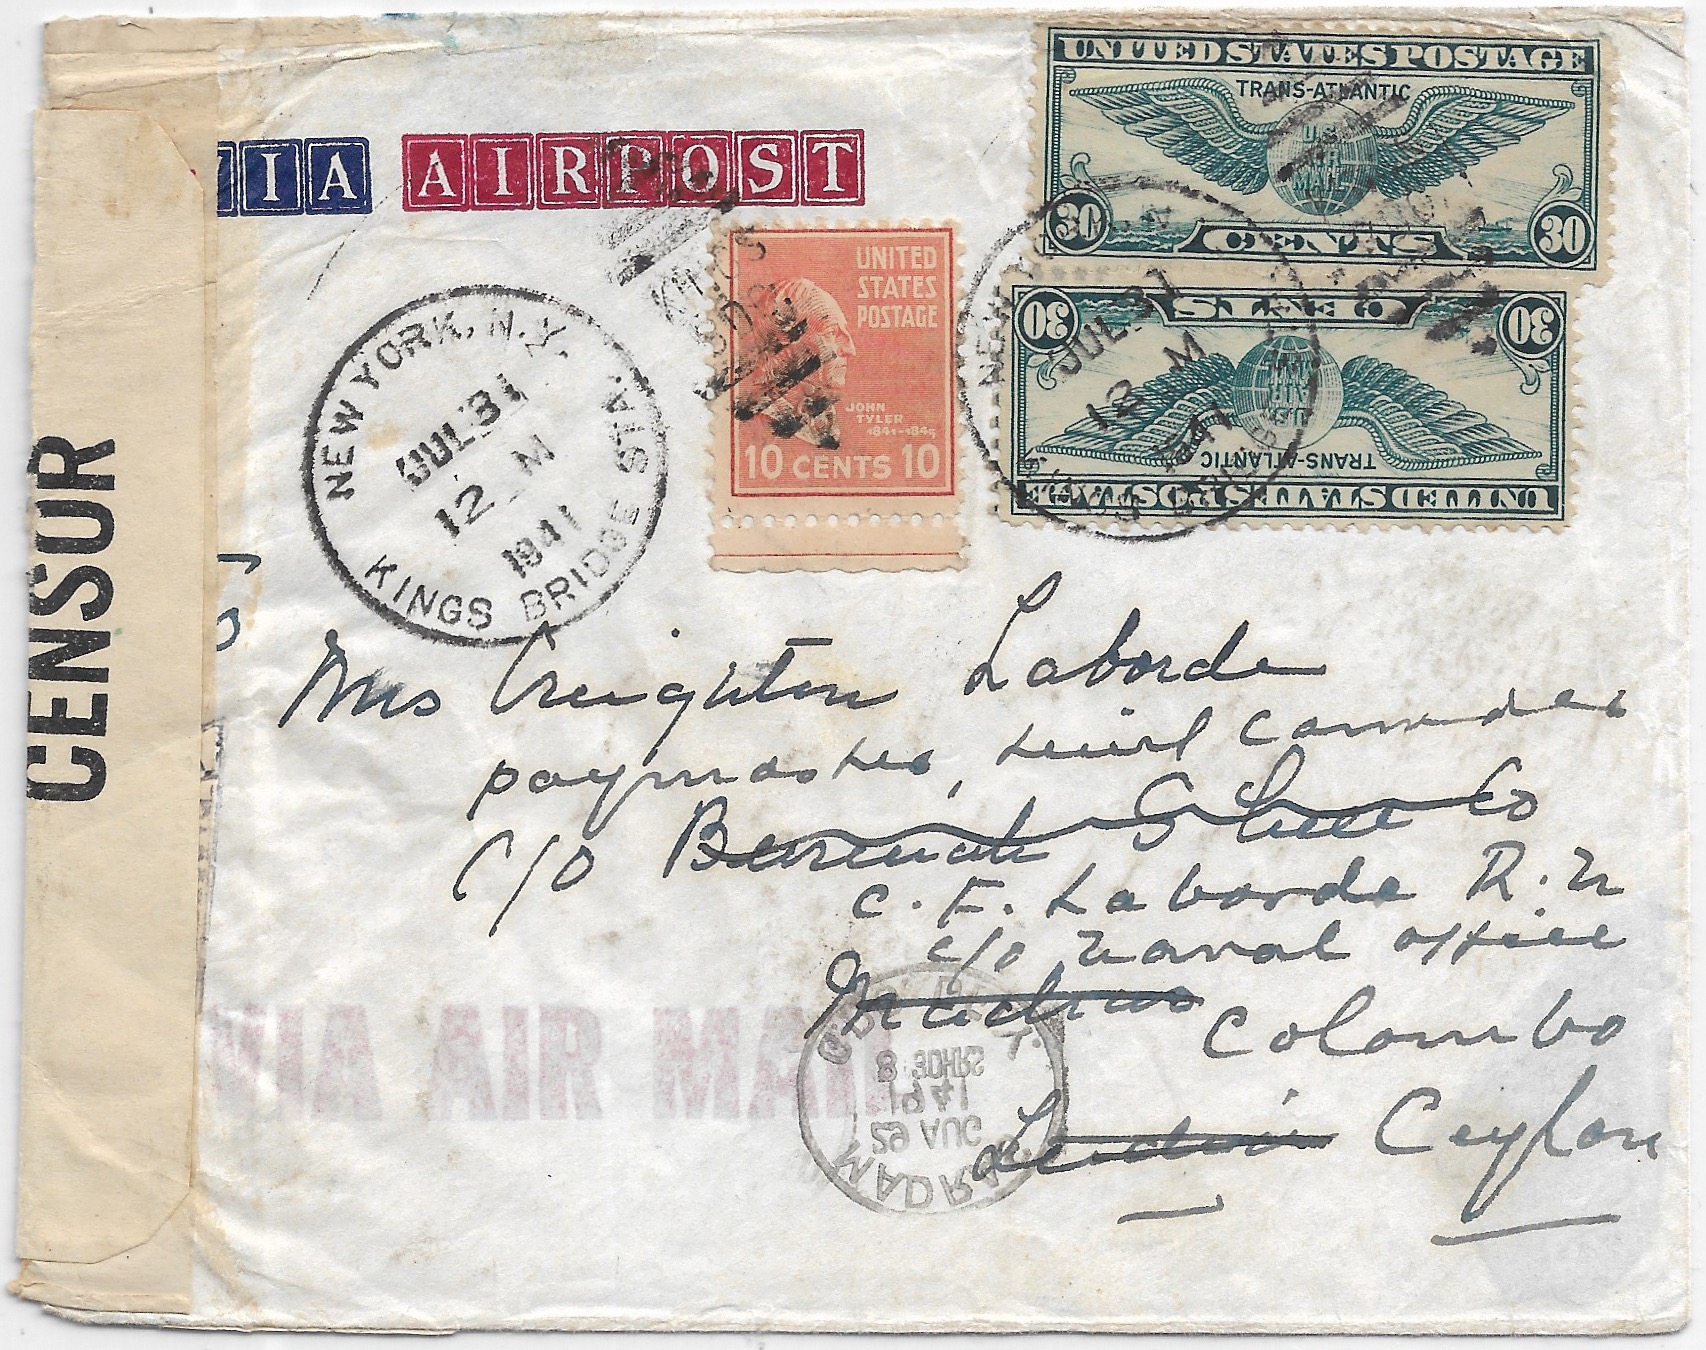 VIA AIRPOST
UNITED STATES POSTAGE
TRANS-ATLANTIC
U.S.
AIR
MAIL
30 CENTS 30
UNITED
STATES
POSTAGE
JOHN
TYLER
1841-1845
10 CENTS 10
30 CENTS 30
U.S.
AIR
MAIL
TRANS-ATLANTIC
UNITED STATES POSTAGE
NEW YORK, N.Y.
JUL 31
12 M
1941
KINGS BRIDGE STA.
NEW
JUL 31
12 M
1941
KINGS BRIDGE
CENSOR
Mrs Creighton Laborde
paymaster
c/o
C. E. Laborde R.N
c/o Naval Office
Madras
Colombo
India Ceylon
VIA AIR MAIL
MADRAS
29 AUG
1941
8 30HRS